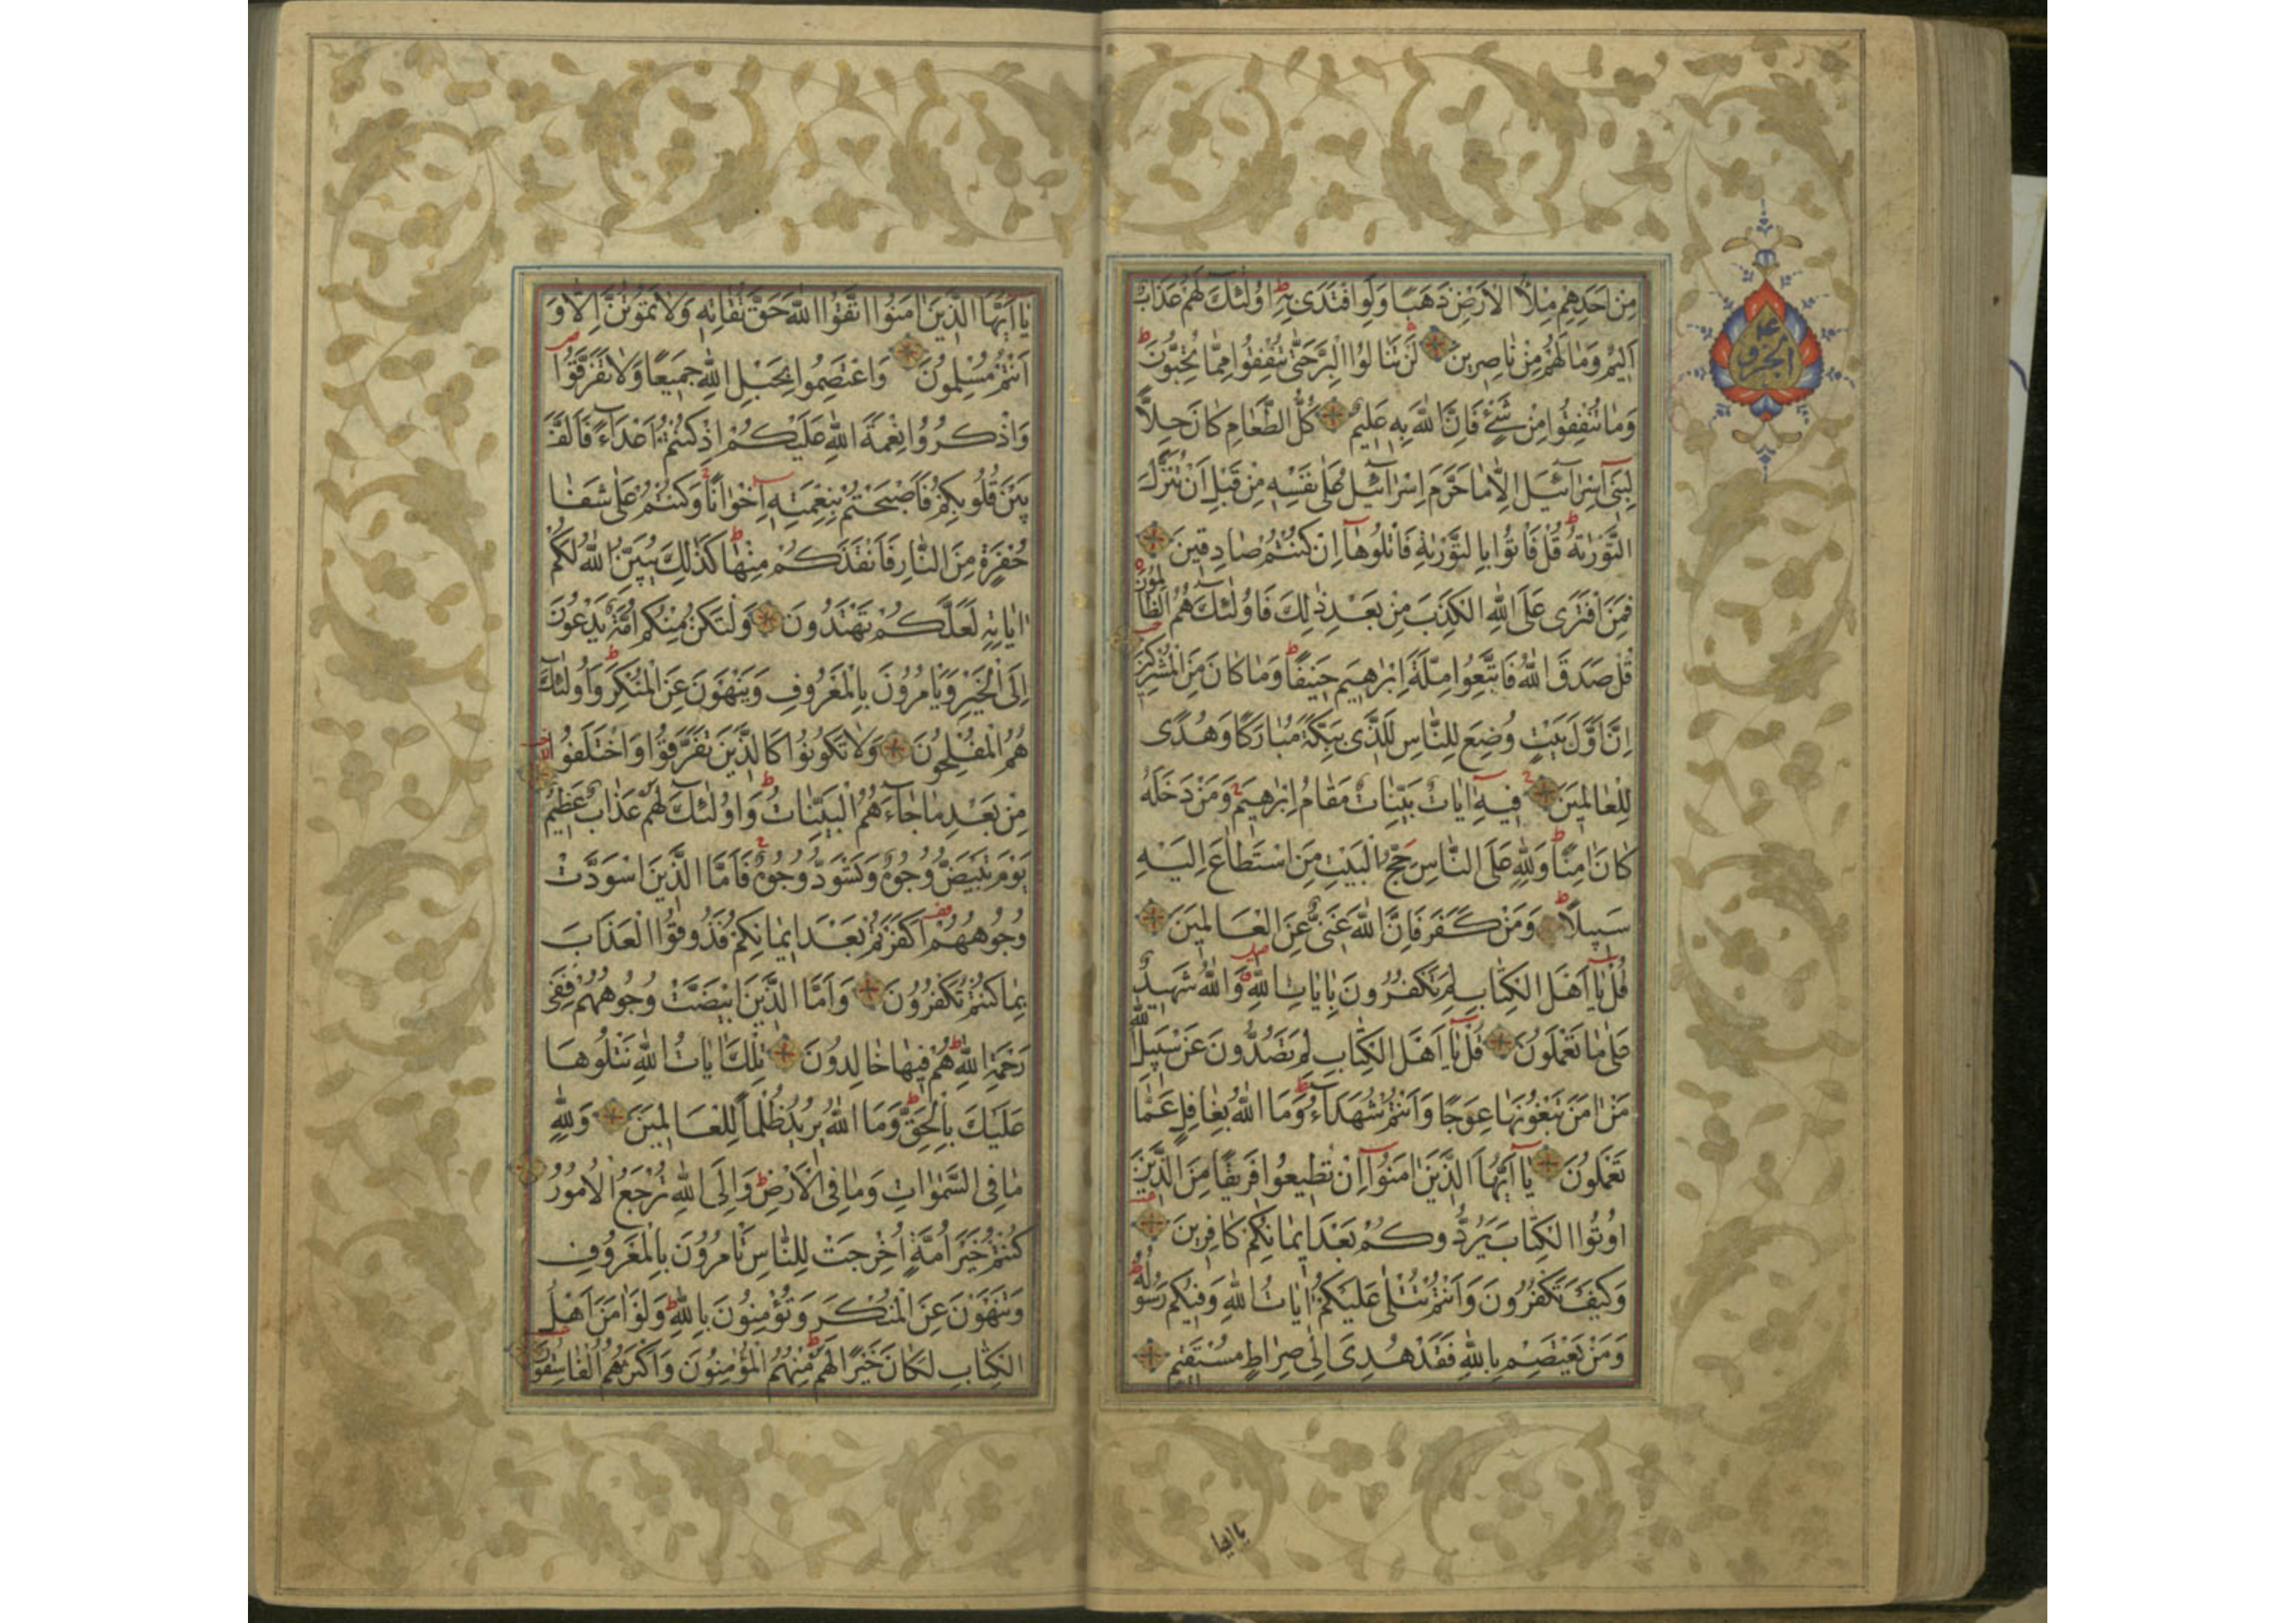 مِنْ اَحَدِهِمْ مِلْاُ الْاَرْضِ ذَهَبًا وَلَوِ افْتَدٰى بِهِ اُولٰئِكَ لَهُمْ عَذَابٌ
اَلِيمٌ وَمَا لَهُمْ مِنْ نَاصِرِينَ لَنْ تَنَالُوا الْبِرَّ حَتّٰى تُنْفِقُوا مِمَّا تُحِبُّونَ
وَمَا تُنْفِقُوا مِنْ شَیْءٍ فَاِنَّ اللّٰهَ بِهِ عَلِيمٌ كُلُّ الطَّعَامِ كَانَ حِلًّا
لِبَنِى اِسْرَآئِيلَ اِلَّا مَا حَرَّمَ اِسْرَآئِيلُ عَلٰى نَفْسِهِ مِنْ قَبْلِ اَنْ تُنَزَّلَ
التَّوْرٰيةُ قُلْ فَاْتُوا بِالتَّوْرٰيةِ فَاتْلُوهَآ اِنْ كُنْتُمْ صَادِقِينَ
فَمَنِ افْتَرٰى عَلَى اللّٰهِ الْكَذِبَ مِنْ بَعْدِ ذٰلِكَ فَاُولٰئِكَ هُمُ الظَّالِمُونَ
قُلْ صَدَقَ اللّٰهُ فَاتَّبِعُوا مِلَّةَ اِبْرٰهِيمَ حَنِيفًا وَمَا كَانَ مِنَ الْمُشْرِكِينَ
اِنَّ اَوَّلَ بَيْتٍ وُضِعَ لِلنَّاسِ لَلَّذِى بِبَكَّةَ مُبَارَكًا وَهُدًى
لِلْعَالَمِينَ فِيهِ اٰيَاتٌ بَيِّنَاتٌ مَقَامُ اِبْرٰهِيمَ وَمَنْ دَخَلَهُ
كَانَ اٰمِنًا وَلِلّٰهِ عَلَى النَّاسِ حِجُّ الْبَيْتِ مَنِ اسْتَطَاعَ اِلَيْهِ
سَبِيلًا وَمَنْ كَفَرَ فَاِنَّ اللّٰهَ غَنِىٌّ عَنِ الْعَالَمِينَ
قُلْ يَآ اَهْلَ الْكِتَابِ لِمَ تَكْفُرُونَ بِاٰيَاتِ اللّٰهِ وَاللّٰهُ شَهِيدٌ
عَلٰى مَا تَعْمَلُونَ قُلْ يَآ اَهْلَ الْكِتَابِ لِمَ تَصُدُّونَ عَنْ سَبِيلِ اللّٰهِ
مَنْ اٰمَنَ تَبْغُونَهَا عِوَجًا وَاَنْتُمْ شُهَدَآءُ وَمَا اللّٰهُ بِغَافِلٍ عَمَّا
تَعْمَلُونَ يَآ اَيُّهَا الَّذِينَ اٰمَنُوآ اِنْ تُطِيعُوا فَرِيقًا مِنَ الَّذِينَ
اُوتُوا الْكِتَابَ يَرُدُّوكُمْ بَعْدَ اِيمَانِكُمْ كَافِرِينَ
وَكَيْفَ تَكْفُرُونَ وَاَنْتُمْ تُتْلٰى عَلَيْكُمْ اٰيَاتُ اللّٰهِ وَفِيكُمْ رَسُولُهُ
وَمَنْ يَعْتَصِمْ بِاللّٰهِ فَقَدْ هُدِىَ اِلٰى صِرَاطٍ مُسْتَقِيمٍ
يا ايها
يَآ اَيُّهَا الَّذِينَ اٰمَنُوا اتَّقُوا اللّٰهَ حَقَّ تُقَاتِهِ وَلَا تَمُوتُنَّ اِلَّا وَ
اَنْتُمْ مُسْلِمُونَ وَاعْتَصِمُوا بِحَبْلِ اللّٰهِ جَمِيعًا وَلَا تَفَرَّقُوا
وَاذْكُرُوا نِعْمَةَ اللّٰهِ عَلَيْكُمْ اِذْ كُنْتُمْ اَعْدَآءً فَاَلَّفَ
بَيْنَ قُلُوبِكُمْ فَاَصْبَحْتُمْ بِنِعْمَتِهِ اِخْوَانًا وَكُنْتُمْ عَلٰى شَفَا
حُفْرَةٍ مِنَ النَّارِ فَاَنْقَذَكُمْ مِنْهَا كَذٰلِكَ يُبَيِّنُ اللّٰهُ لَكُمْ
اٰيَاتِهِ لَعَلَّكُمْ تَهْتَدُونَ وَلْتَكُنْ مِنْكُمْ اُمَّةٌ يَدْعُونَ
اِلَى الْخَيْرِ وَيَاْمُرُونَ بِالْمَعْرُوفِ وَيَنْهَوْنَ عَنِ الْمُنْكَرِ وَاُولٰئِكَ
هُمُ الْمُفْلِحُونَ وَلَا تَكُونُوا كَالَّذِينَ تَفَرَّقُوا وَاخْتَلَفُوا
مِنْ بَعْدِ مَا جَآءَهُمُ الْبَيِّنَاتُ وَاُولٰئِكَ لَهُمْ عَذَابٌ عَظِيمٌ
يَوْمَ تَبْيَضُّ وُجُوهٌ وَتَسْوَدُّ وُجُوهٌ فَاَمَّا الَّذِينَ اسْوَدَّتْ
وُجُوهُهُمْ اَكَفَرْتُمْ بَعْدَ اِيمَانِكُمْ فَذُوقُوا الْعَذَابَ
بِمَا كُنْتُمْ تَكْفُرُونَ وَاَمَّا الَّذِينَ ابْيَضَّتْ وُجُوهُهُمْ فَفِى
رَحْمَةِ اللّٰهِ هُمْ فِيهَا خَالِدُونَ تِلْكَ اٰيَاتُ اللّٰهِ نَتْلُوهَا
عَلَيْكَ بِالْحَقِّ وَمَا اللّٰهُ يُرِيدُ ظُلْمًا لِلْعَالَمِينَ وَلِلّٰهِ
مَا فِى السَّمٰوَاتِ وَمَا فِى الْاَرْضِ وَاِلَى اللّٰهِ تُرْجَعُ الْاُمُورُ
كُنْتُمْ خَيْرَ اُمَّةٍ اُخْرِجَتْ لِلنَّاسِ تَاْمُرُونَ بِالْمَعْرُوفِ
وَتَنْهَوْنَ عَنِ الْمُنْكَرِ وَتُؤْمِنُونَ بِاللّٰهِ وَلَوْ اٰمَنَ اَهْلُ
الْكِتَابِ لَكَانَ خَيْرًا لَهُمْ مِنْهُمُ الْمُؤْمِنُونَ وَاَكْثَرُهُمُ الْفَاسِقُونَ